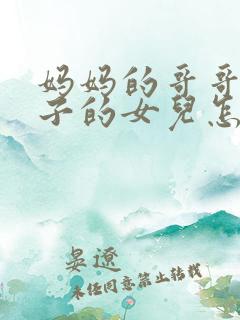 妈妈的哥哥
子的女兒怎
晏遼
未經同意禁止轉載